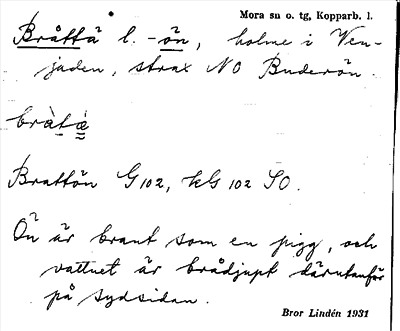 Mora sn o. tg, Kopparb. l.
Bråttä l. -ön, holme i Ven-
jaden, strax NO Buderön.
bràtä̀
Brattön G 102, kG 102 SO.
Ön är brant som en pigg, och
vattnet är brådjupt därutanför
på sydsidan.
Bror Lindén 1931